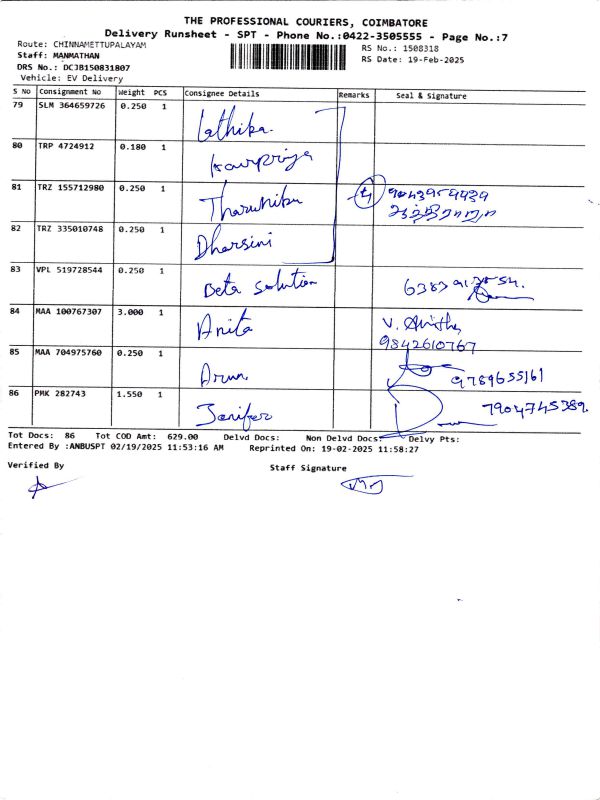 THE PROFESSIONAL COURIERS, COIMBATORE
Delivery Runsheet - SPT - Phone No.:0422-3505555 - Page No.:7
Route: CHINNAMETTUPALAYAM
RS No.: 1508318
Staff: MANMATHAN
RS Date: 19-Feb-2025
DRS No.: DC3B150831807
Vehicle: EV Delivery
S No Consignment No Weight PCS Consignee Details Remarks Seal & Signature
79 SLM 364659726 0.250 1 Lathika.
80 TRP 4724912 0.180 1
81 TRZ 155712980 0.250 1 Tharunika
82 TRZ 335010748 0.250 1 Dharsini
83 VPL 519728544 0.250 1 Beta solution
84 MAA 100767307 3.000 1 Anita V. Anitha
9842610767
85 MAA 704975760 0.250 1 Arun. 9789655161
86 PMK 282743 1.550 1 Jenifer 7904745389.
Tot Docs: 86 Tot COD Amt: 629.00 Delvd Docs: Non Delvd Docs: Delvy Pts:
Entered By :ANBUSPT 02/19/2025 11:53:16 AM Reprinted On: 19-02-2025 11:58:27
Verified By
Staff Signature